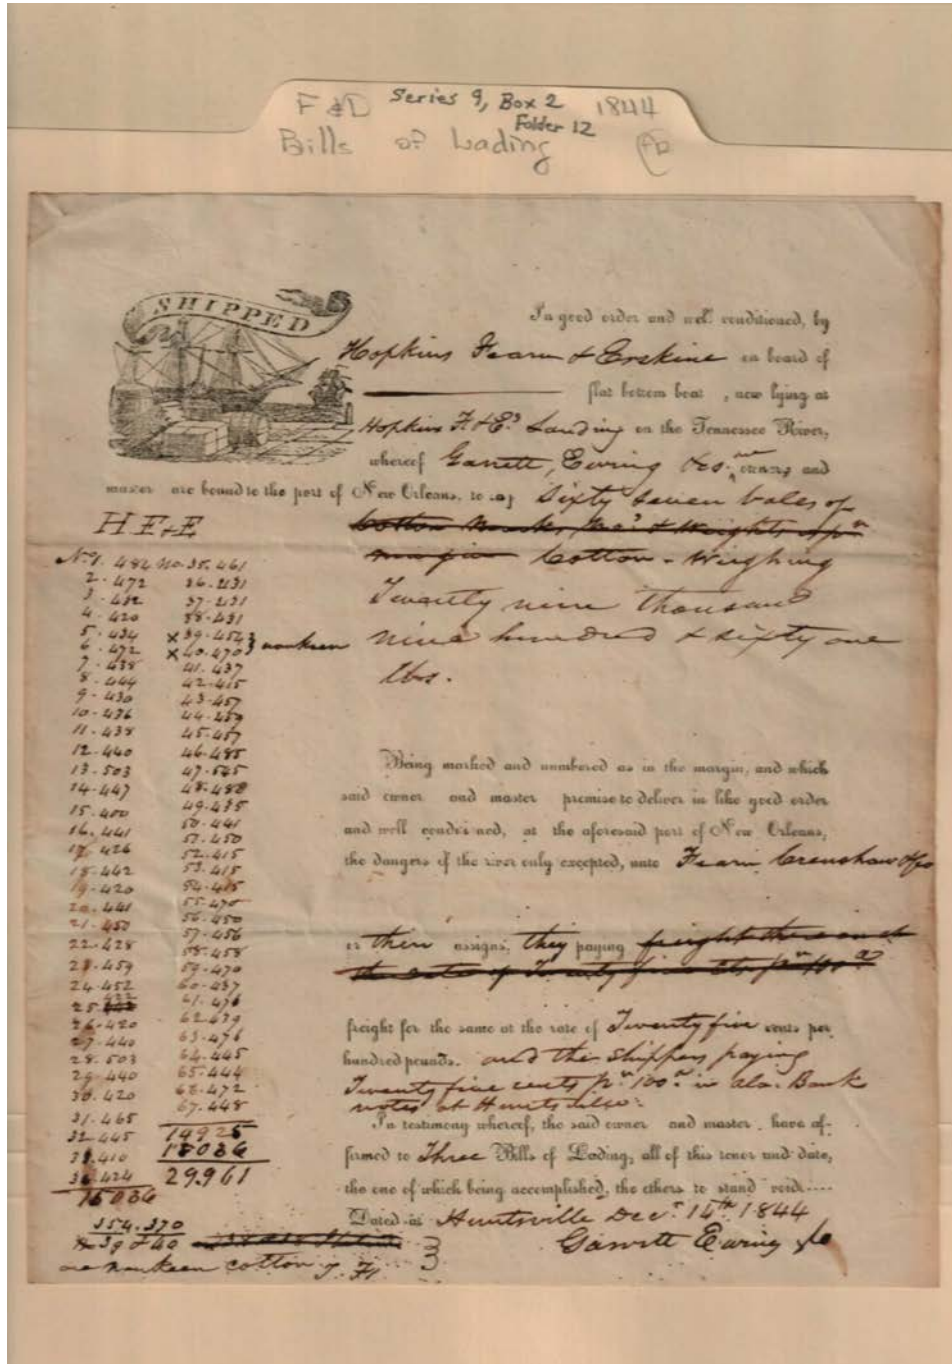 F & D Series 9, Box 2 1844
Folder 12
Bills of Lading
SHIPPED
In good order and well conditioned, by
Hopkins Fearn & Erskine on board of
flat bottom boat , now lying at
Hopkins F. & E's Landing on the Tennessee River,
whereof Garrett, Ewing &co. are owners and
master are bound to the port of New Orleans, to say Sixty seven bales of
H F & E
Cotton - Weighing
Twenty nine thousand
nine hundred & sixty one
lbs.
No 1. 482 No. 35. 461
2. 472 36. 431
3. 432 37. 431
4. 420 38. 431
5. 434 x 39. 454 } nankeen
6. 472 x 40. 470
7. 438 41. 437
8. 444 42. 415
9. 430 43. 457
10. 436 44. 459
11. 438 45. 457
12. 440 46. 485
13. 503 47. 525
14. 447 48. 488
15. 400 49. 435
16. 441 50. 441
17. 426 51. 450
18. 462 52. 415
19. 420 53. 415
20. 441 54. 415
21. 450 55. 470
22. 428 56. 450
23. 459 57. 456
24. 452 58. 458
25. 59. 470
26. 420 60. 437
27. 440 61. 476
28. 503 62. 439
29. 440 63. 476
30. 420 64. 445
31. 465 65. 444
32. 445 66. 472
33. 410 67. 448
34. 424 14925
15036 15036
29.961
Being marked and numbered as in the margin, and which
said owner and master promise to deliver in like good order
and well conditioned, at the aforesaid port of New Orleans,
the dangers of the river only excepted, unto Fearn Crenshaw & co
or their assigns, they paying
freight for the same at the rate of Twenty five cents per
hundred pounds. and the shippers paying
Twenty five cents pr 100 in Ala. Bank
notes at Huntsville.
In testimony whereof, the said owner and master have af-
firmed to Three Bills of Lading, all of this tenor and date,
the one of which being accomplished, the others to stand void....
Dated at Huntsville Decr 14th 1844
Garrett Ewing & Co
354.370
39 & 40
are nankeen cotton